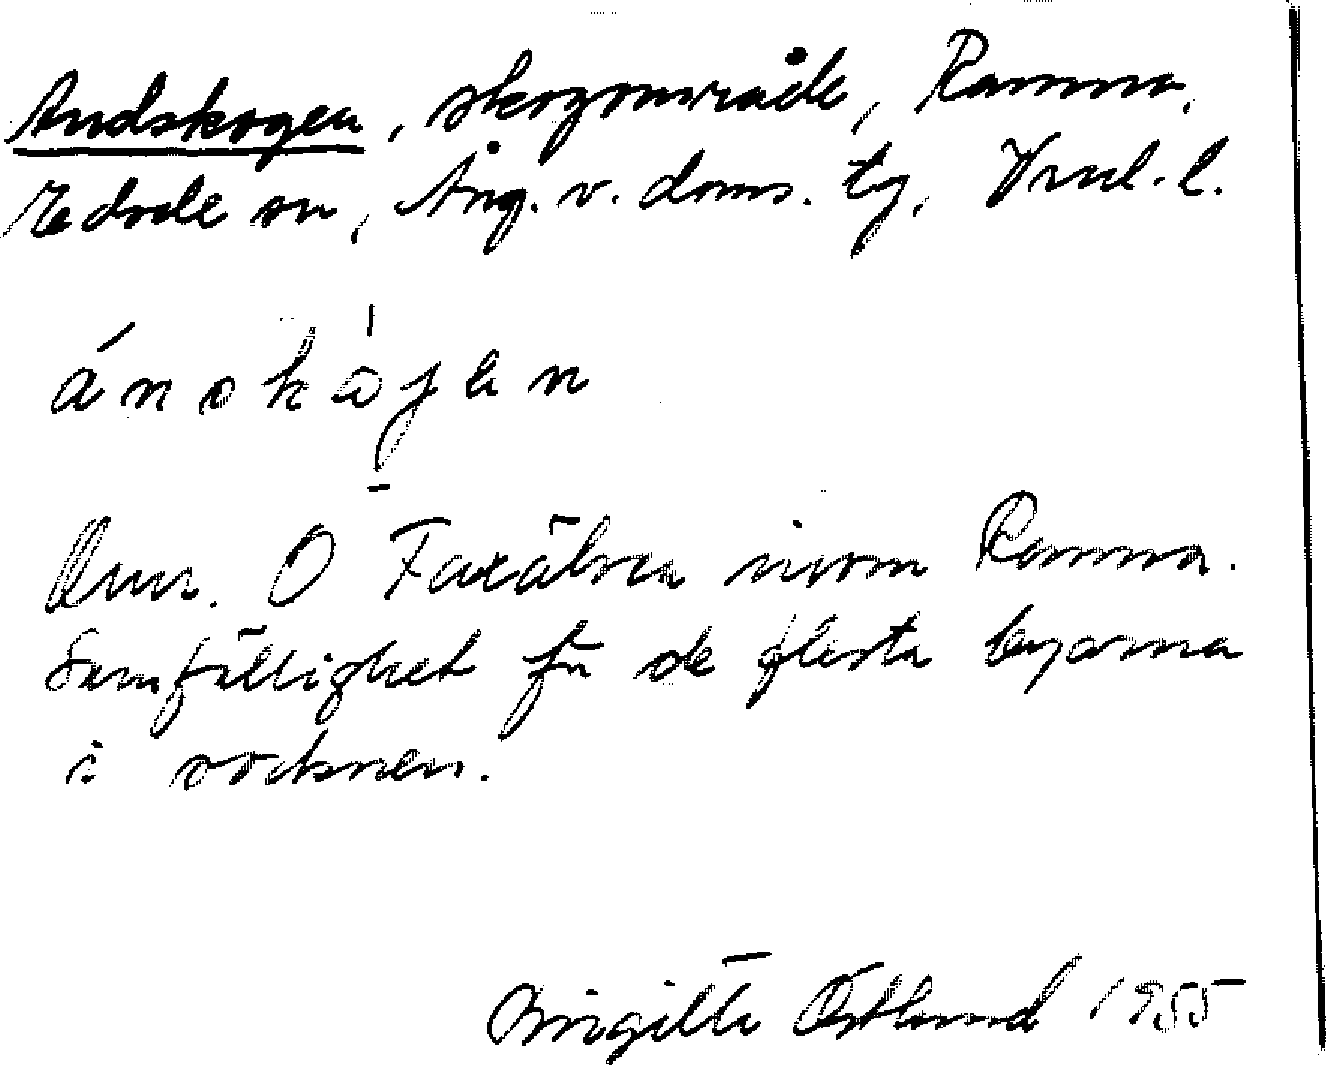 Andskogen, skogsområde, Ramna,
Edsele sn, Ång. v. doms. tg, Vnl. l.
ánskåjen
Omr. Ö Faxälven inom Ramna.
Samfällighet för de flesta byarna
i socknen.
Birgitta Östlund 1955